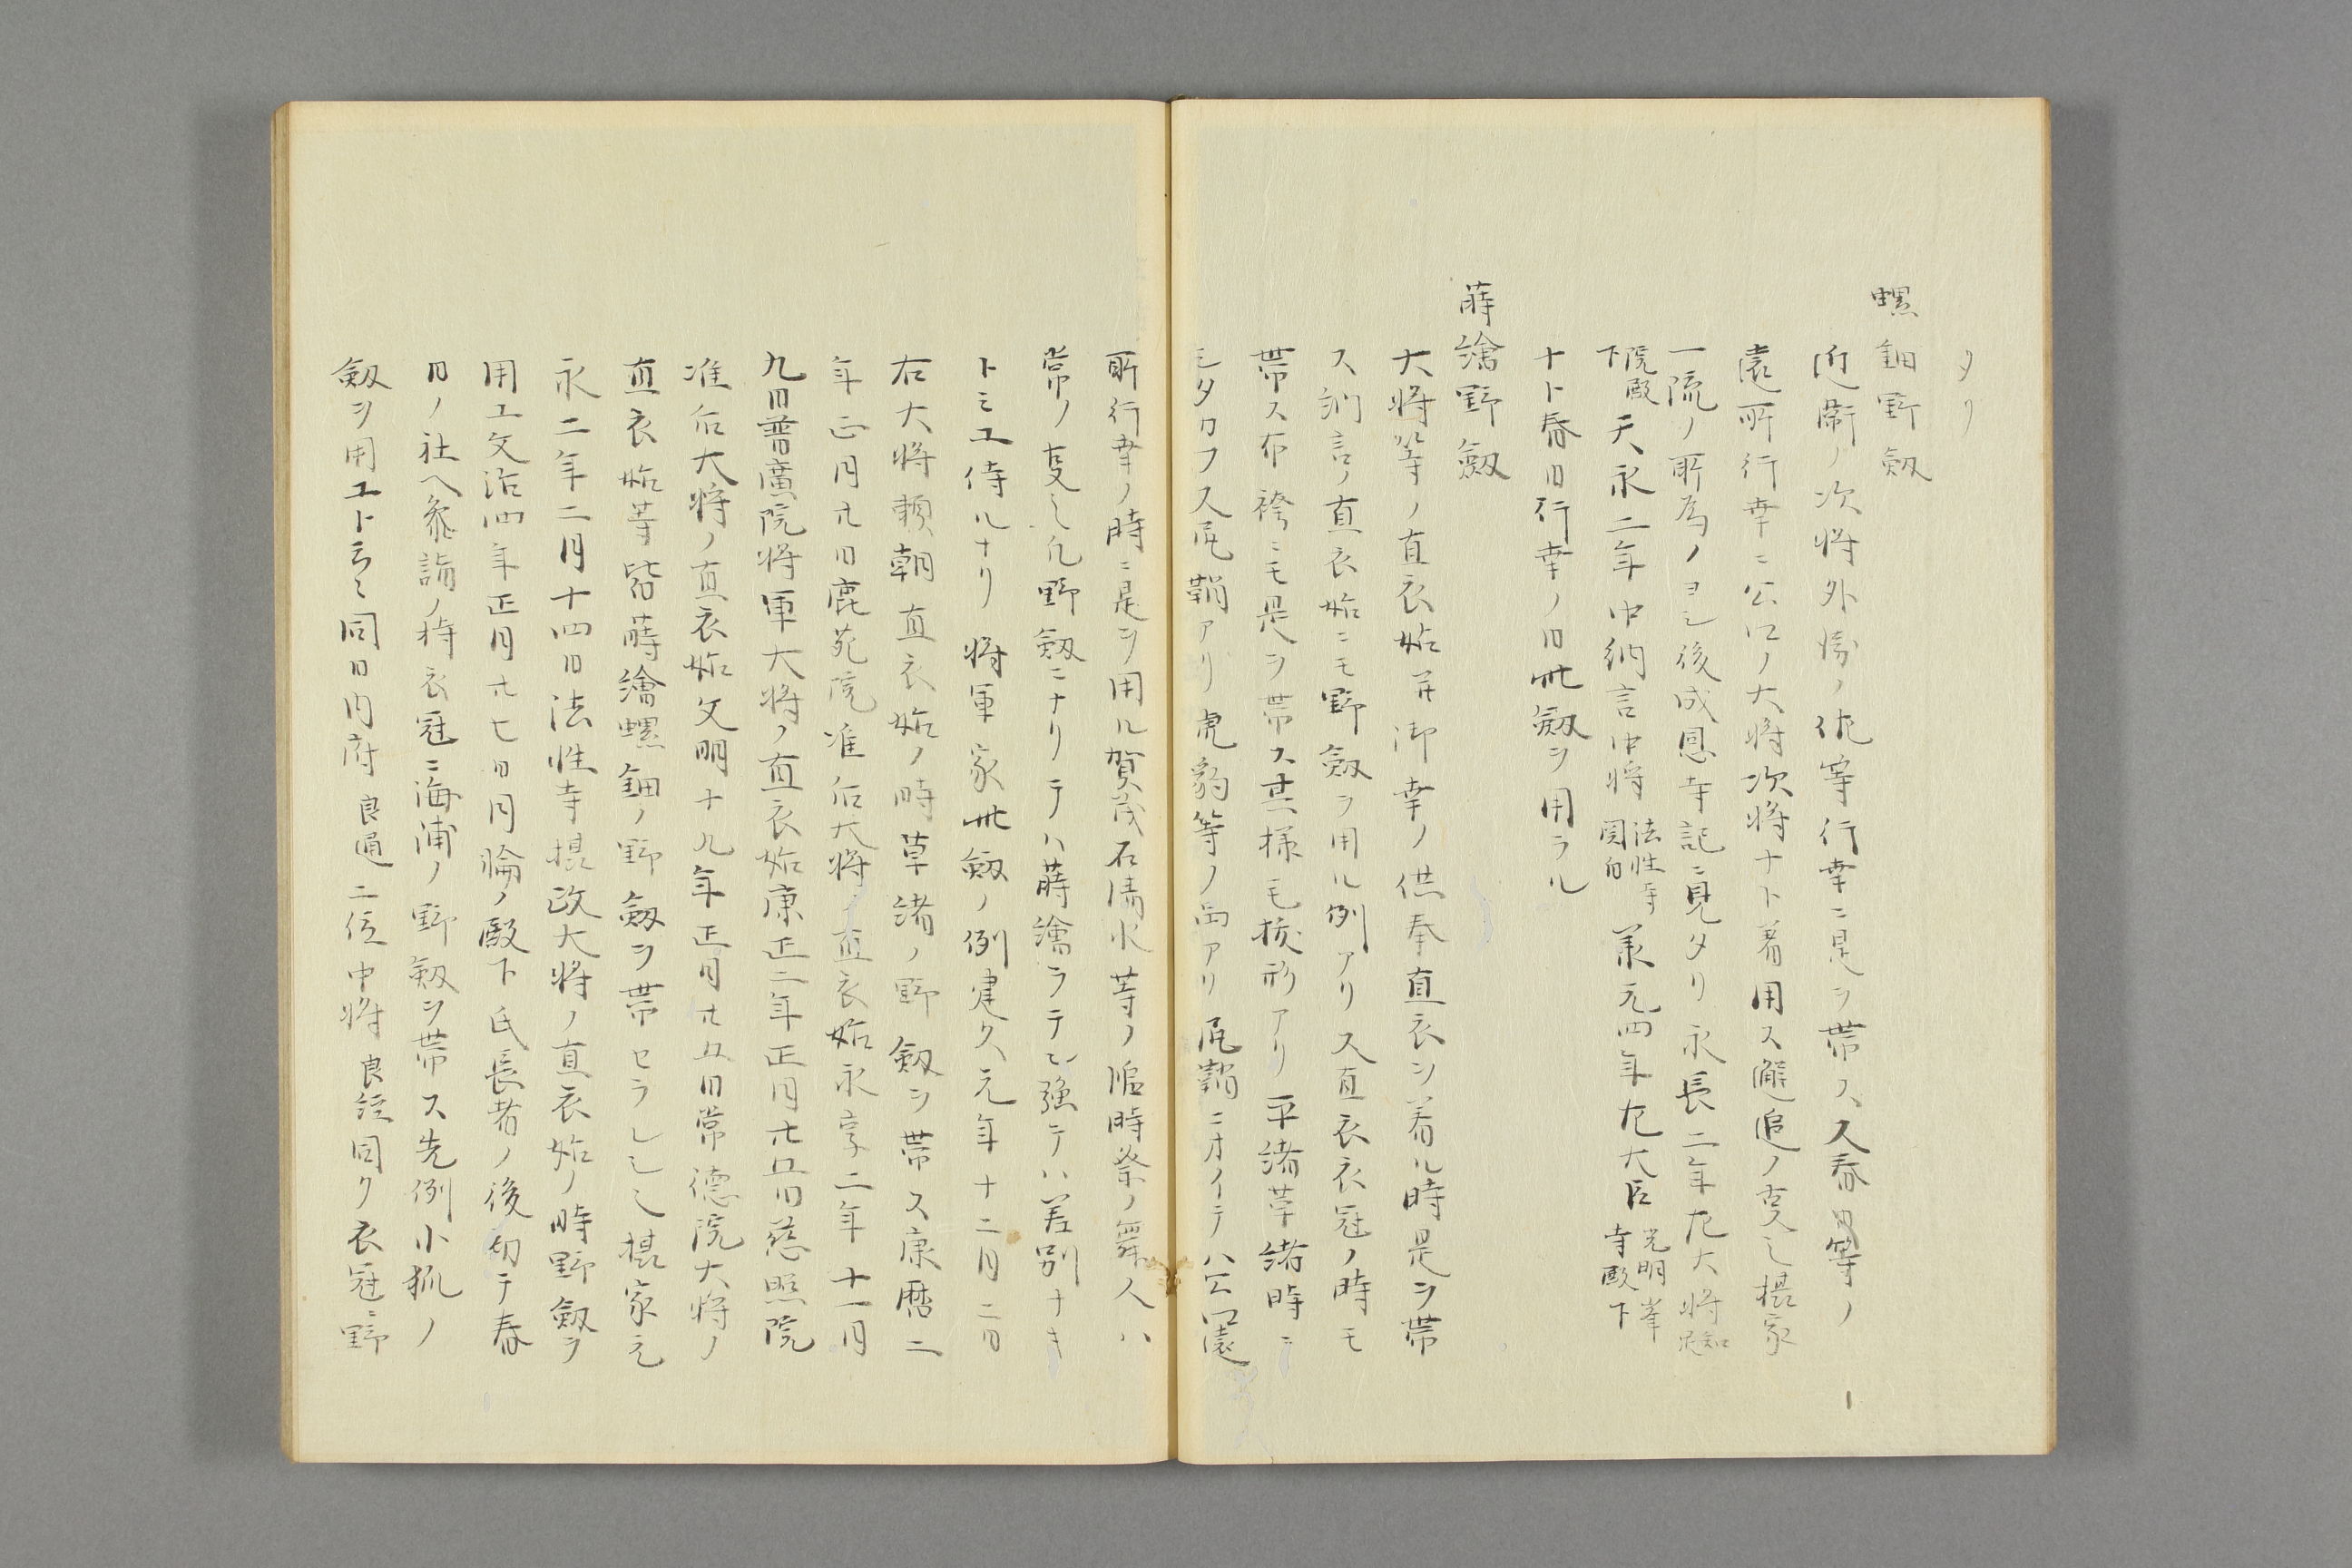 タリ
螺鈿野劔
近衛ノ次将外衛ノ佐等行幸ニ是ヲ帯ス又春日等ノ
遠所行幸ニ公卿ノ大将次将ナト着用ス随追ノ支也摂家
一流ノ所為ノヨシ後成恩寺記ニ見タリ永長二年左大将知足
院殿下天永二年中納言中将法性寺関白兼元四年左大臣光明峯寺殿下
ナト春日行幸ノ日此劔ヲ用ラル
蒔繪野劔
大将等ノ直衣始并御幸ノ供奉直衣ヲ着ル時是ヲ帯
ス納言ノ直衣始ニモ野劔ヲ用ル例アリ又直衣衣冠ノ時モ
帯ス布袴ニモ是ヲ帯ス其様モ樣形アリ平緒革緒時ニ
シタカフ又尻鞘アリ虎豹等ノ品アリ尻鞘ニオイテハ公卿遠
所行幸ノ時ニ是ヲ用ル賀茂石清水等ノ臨時祭ノ舞人ハ
常ノ支也凡野劔ニナリテハ蒔繪ラテン強テハ差別ナキ
トミエ侍ルナリ将軍家此劔ノ例建久元年十二月二日
右大将頼朝直衣始ノ時草緒ノ野劔ヲ帯ス康暦二
年正月廿日鹿苑院准后大将ノ直衣始永享二年十一月
九日普廣院将軍大将ノ直衣始康正二年正月廿五日慈照院
准后大将ノ直衣始文明十九年正月廿五日常徳院大将ノ
直衣始等皆蒔繪螺鈿ノ野劔ヲ帯セラレシ也摂家元
永二年二月十四日法性寺摂政大将ノ直衣始ノ時野劔ヲ
用エ文治四年正月廿七日月輪ノ殿下氏長者ノ後初テ春
日ノ社ヘ参詣ノ時衣冠ニ海浦ノ野劔ヲ帯ス先例小狐ノ
劔ヲ用エト云々同日内府良通二位中将良経同ク衣冠ニ野